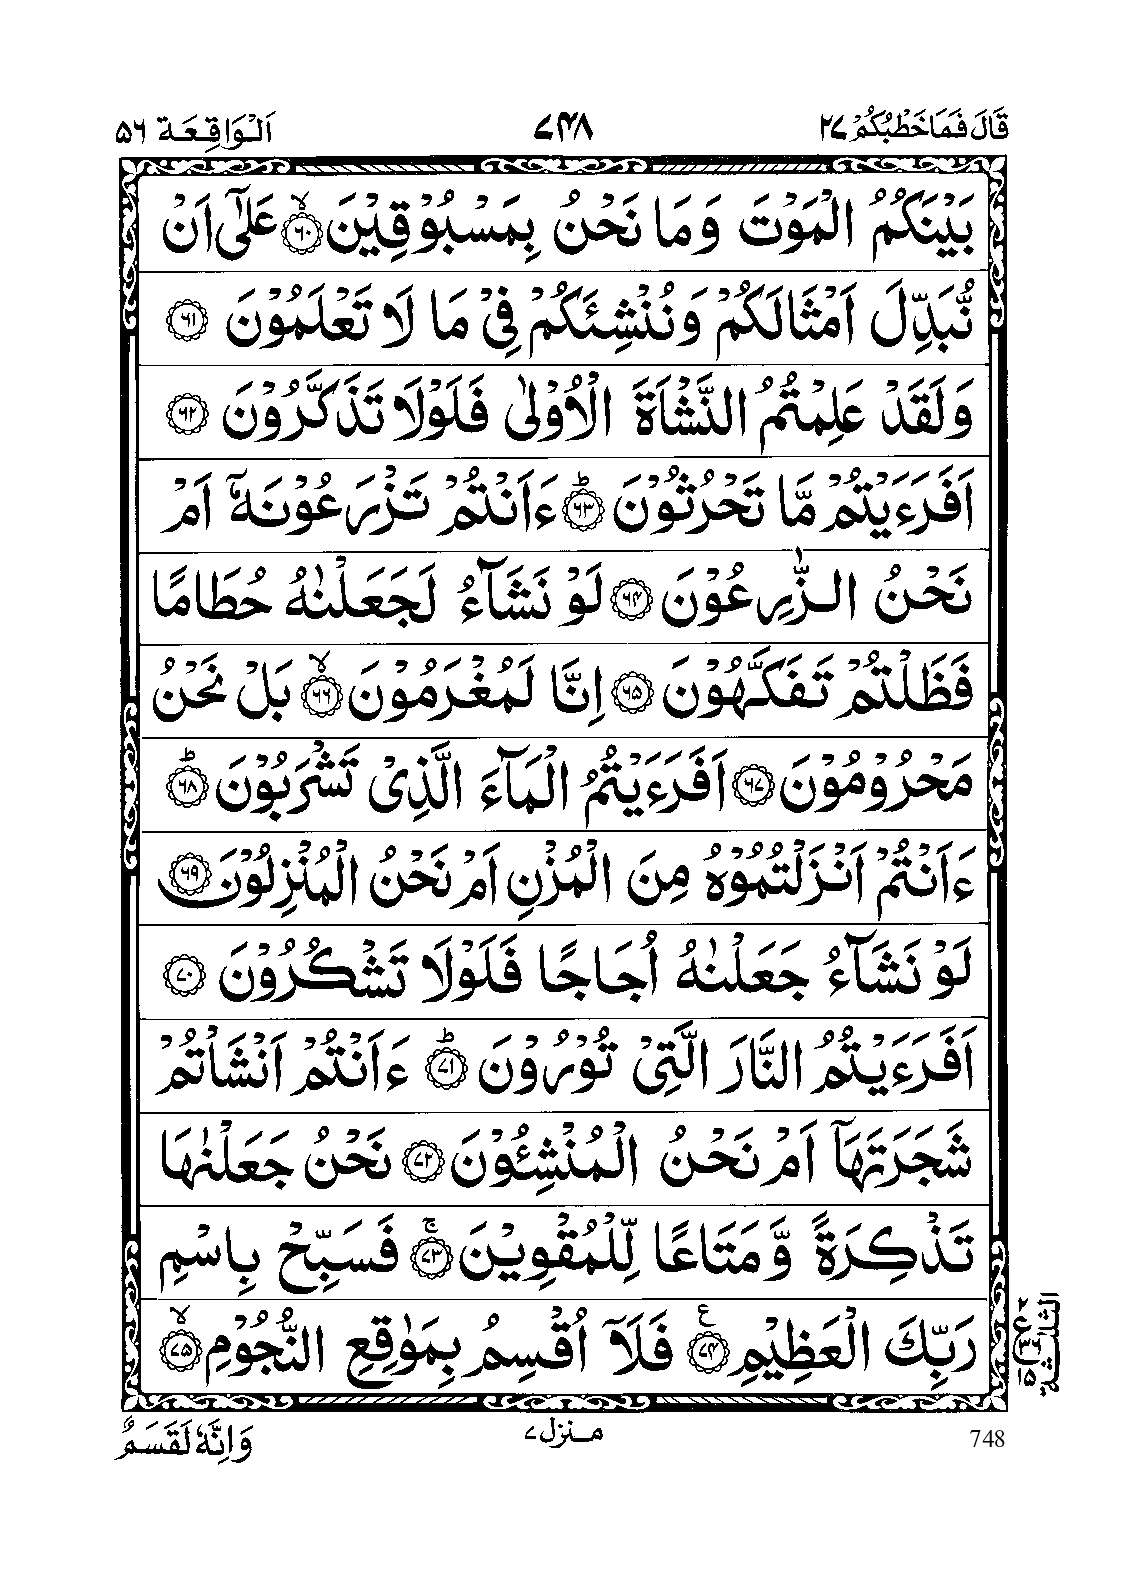 قَالَ فَمَا خَطْبُكُمْ ٢٧ ٧٤٨ اَلْوَاقِعَة ٥٦
بَيْنَكُمُ الْمَوْتَ وَمَا نَحْنُ بِمَسْبُوْقِيْنَ ۙ﴿٦٠﴾ عَلٰٓى اَنْ
نُّبَدِّلَ اَمْثَالَكُمْ وَنُنْشِئَكُمْ فِيْ مَا لَا تَعْلَمُوْنَ ﴿٦١﴾
وَلَقَدْ عَلِمْتُمُ النَّشْاَةَ الْاُوْلٰى فَلَوْلَا تَذَكَّرُوْنَ ﴿٦٢﴾
اَفَرَءَيْتُمْ مَّا تَحْرُثُوْنَ ؕ﴿٦٣﴾ ءَاَنْتُمْ تَزْرَعُوْنَهٗٓ اَمْ
نَحْنُ الزّٰرِعُوْنَ ﴿٦٤﴾ لَوْ نَشَآءُ لَجَعَلْنٰهُ حُطَامًا
فَظَلْتُمْ تَفَكَّهُوْنَ ﴿٦٥﴾ اِنَّا لَمُغْرَمُوْنَ ۙ﴿٦٦﴾ بَلْ نَحْنُ
مَحْرُوْمُوْنَ ﴿٦٧﴾ اَفَرَءَيْتُمُ الْمَآءَ الَّذِيْ تَشْرَبُوْنَ ؕ﴿٦٨﴾
ءَاَنْتُمْ اَنْزَلْتُمُوْهُ مِنَ الْمُزْنِ اَمْ نَحْنُ الْمُنْزِلُوْنَ ﴿٦٩﴾
لَوْ نَشَآءُ جَعَلْنٰهُ اُجَاجًا فَلَوْلَا تَشْكُرُوْنَ ﴿٧٠﴾
اَفَرَءَيْتُمُ النَّارَ الَّتِيْ تُوْرُوْنَ ؕ﴿٧١﴾ ءَاَنْتُمْ اَنْشَاْتُمْ
شَجَرَتَهَآ اَمْ نَحْنُ الْمُنْشِـُٔوْنَ ﴿٧٢﴾ نَحْنُ جَعَلْنٰهَا
تَذْكِرَةً وَّمَتَاعًا لِّلْمُقْوِيْنَ ۚ﴿٧٣﴾ فَسَبِّحْ بِاسْمِ
رَبِّكَ الْعَظِيْمِ ࣖ﴿٧٤﴾ فَلَآ اُقْسِمُ بِمَوٰقِعِ النُّجُوْمِ ۙ﴿٧٥﴾
الثلثة
٢ ع ٣٦ ١٥
748 منزل ٧ وَاِنَّهٗ لَقَسَمٌ